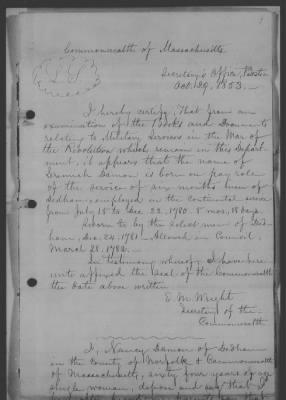 Commonwealth of Massachusetts
L S
Secretary's Office, Boston
Oct. 29, 1853.
I hereby certify, That from an
examination of the Books and Documents
relating to Military Services in the War of
the Revolution which remain in this Depart-
ment, it appears that the name of
Jeremiah Damon is born on pay role
of the service of six months men of
Dedham, employed in the Continental service
from July 15 to Dec. 22, 1780. 5 mos, 18 days.
Sworn to by the Select men of Ded-
ham, Dec. 24, 1781 Allowed in Council,
March 28, 1782.
In testimony whereof, I have here-
unto affixed the Seal of the Commonwealth
the Date above written
E. M. Wright
Secretary of the
Commonwealth
I, Nancy Damon of Dedham
in the County of Norfolk & Commonwealth
of Massachusetts, sixty four years of age
single woman, depose and say, that I